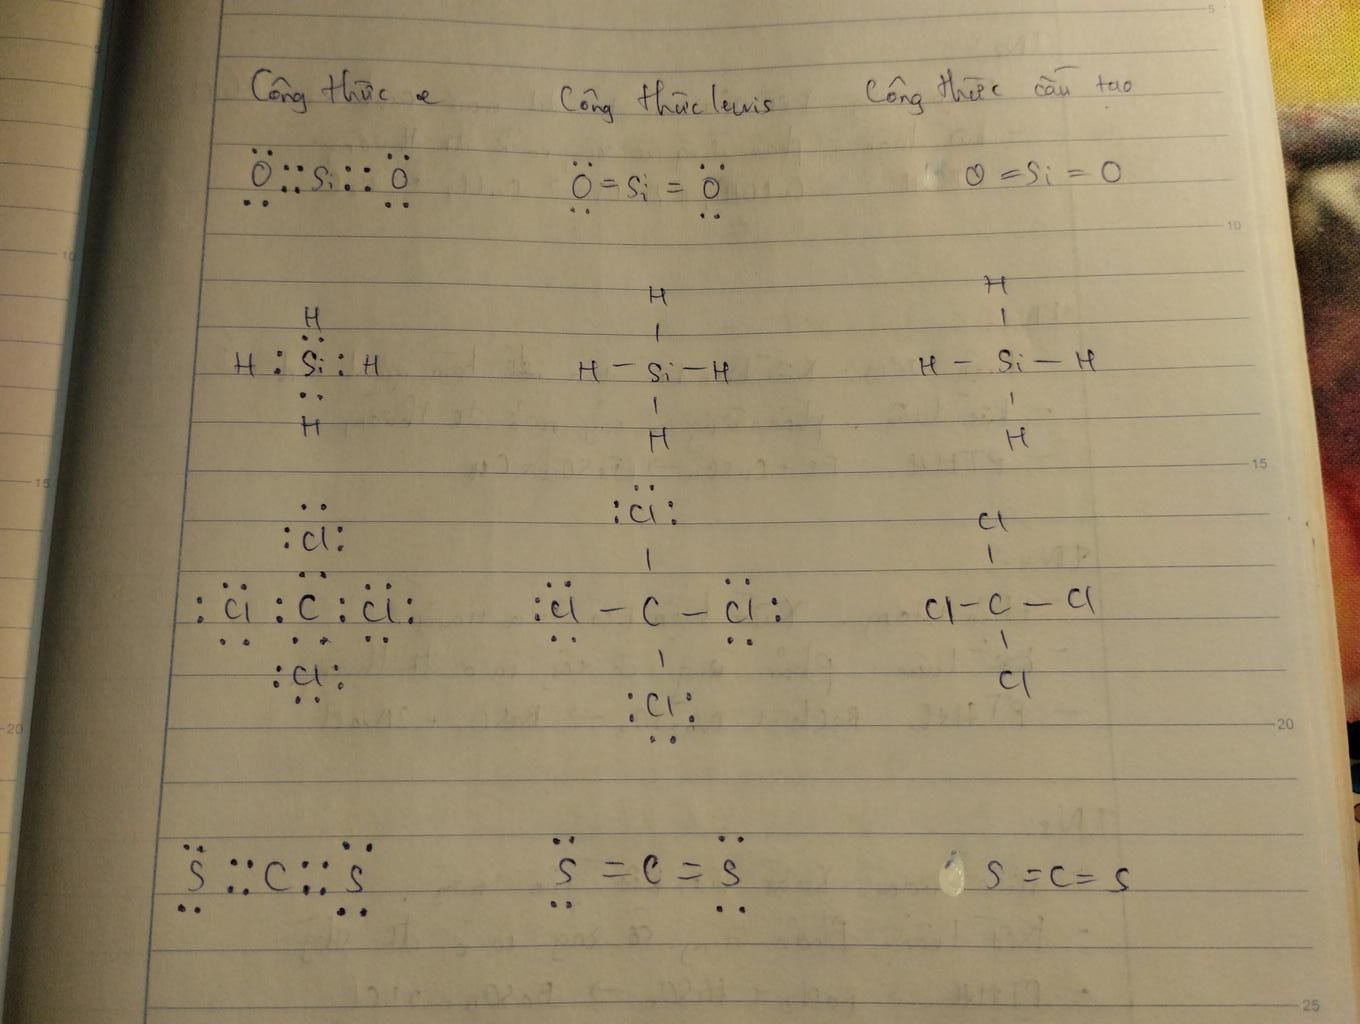 Công thức e Công thức lewis Công thức cấu tạo
Ö::Si::Ö Ö=Si=Ö O=Si=O
H H H
H:Si:H H-Si-H H-Si-H
H H H
:Cl: :Cl: Cl
:Cl:C:Cl: :Cl-C-Cl: Cl-C-Cl
:Cl: :Cl: Cl
S::C::S S=C=S S=C=S
5
10
15
20
25
10
15
20